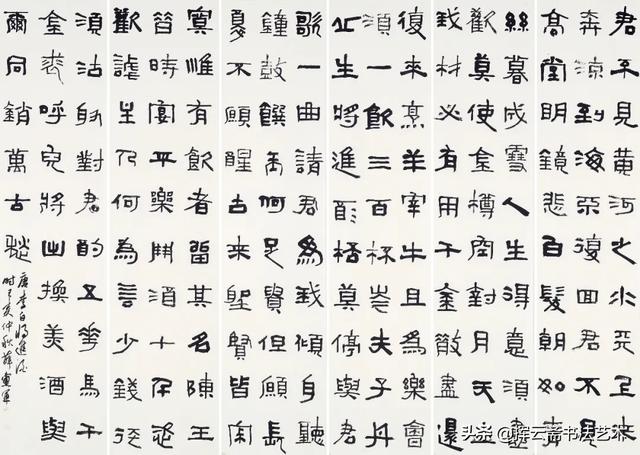 君不見黃河之水天上來
奔流到海不復回君不見
高堂明鏡悲白髮朝如青
絲暮成雪人生得意須盡
歡莫使金樽空對月天生
我材必有用千金散盡還
復來烹羊宰牛且為樂會
須一飲三百杯岑夫子丹
丘生將進酒杯莫停與君
歌一曲請君為我傾耳聽
鐘鼓饌玉何足貴但願長
不願醒古來聖賢皆寂
寞惟有飲者留其名陳王
昔時宴平樂斗酒十千恣
歡謔主人何為言少錢徑
須沽取對君酌五花馬千
金裘呼兒將出換美酒與
爾同銷萬古愁
唐李白將進酒
时己亥仲秋薛
头条 @晖云斋书法艺术